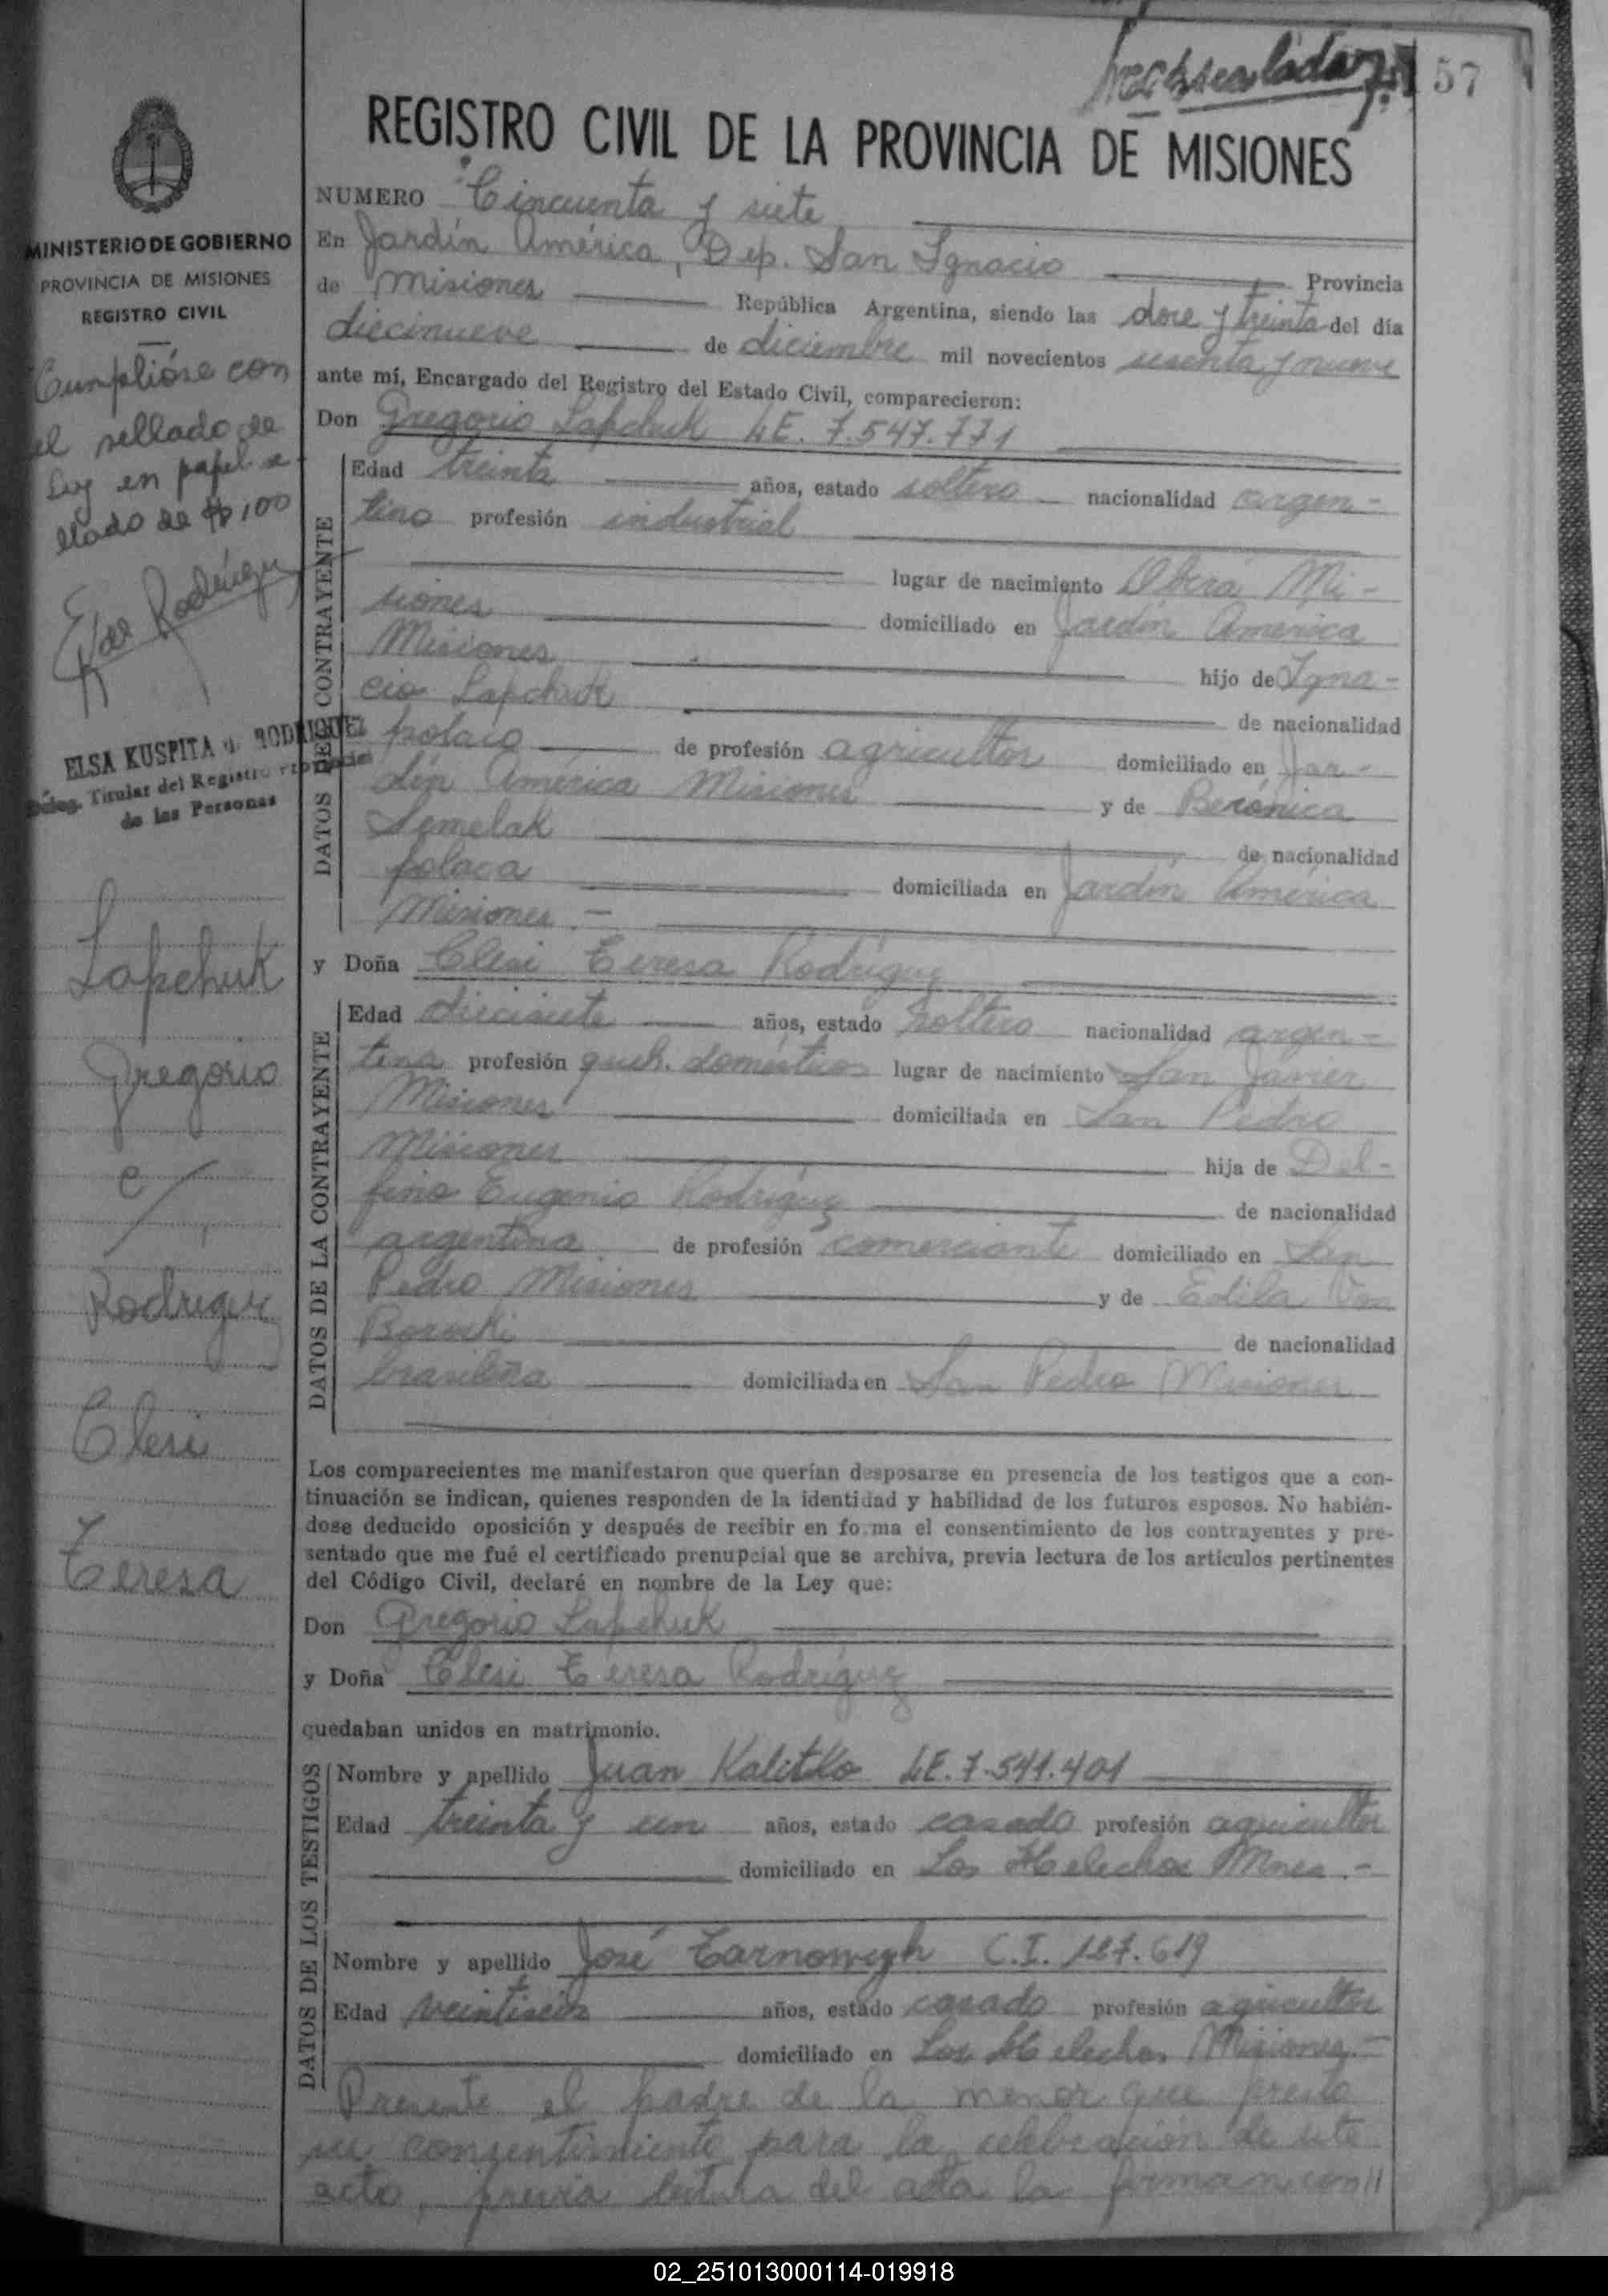 57
REGISTRO CIVIL DE LA PROVINCIA DE MISIONES
NUMERO Cincuenta y siete
En Jardín América, Dep. San Ignacio Provincia
de Misiones República Argentina, siendo las doce y treinta del día
diecinueve de diciembre mil novecientos sesenta y nueve
ante mí, Encargado del Registro del Estado Civil, comparecieron:
Don Gregorio Lapchuk LE. 7.547.771
DATOS DEL CONTRAYENTE
Edad treinta años, estado soltero nacionalidad argen-
tino profesión industrial
lugar de nacimiento Oberá Mi-
siones domiciliado en Jardín América
Misiones hijo de Igna-
cio Lapchuk de nacionalidad
polaco de profesión agricultor domiciliado en Jar-
dín América Misiones y de Berónica
Semelak de nacionalidad
polaca domiciliada en Jardín América
Misiones.-
y Doña Clesi Teresa Rodríguez
DATOS DE LA CONTRAYENTE
Edad diecisiete años, estado soltero nacionalidad argen-
tina profesión queh. domésticos lugar de nacimiento San Javier
Misiones domiciliada en San Pedro
Misiones hija de Del-
fino Eugenio Rodríguez de nacionalidad
argentina de profesión comerciante domiciliado en San
Pedro Misiones y de
de nacionalidad
brasileña domiciliada en San Pedro Misiones
Los comparecientes me manifestaron que querían desposarse en presencia de los testigos que a con-
tinuación se indican, quienes responden de la identidad y habilidad de los futuros esposos. No habién-
dose deducido oposición y después de recibir en forma el consentimiento de los contrayentes y pre-
sentado que me fué el certificado prenupcial que se archiva, previa lectura de los artículos pertinentes
del Código Civil, declaré en nombre de la Ley que:
Don Gregorio Lapchuk
y Doña Clesi Teresa Rodríguez
quedaban unidos en matrimonio.
DATOS DE LOS TESTIGOS
Nombre y apellido Juan Kalitko LE. 7.541.401
Edad treinta y un años, estado casado profesión agricultor
domiciliado en Los Helechos Mnes.-
Nombre y apellido José C.I. 127.619
Edad veintiseis años, estado casado profesión agricultor
domiciliado en Los Helechos Misiones.-
Presente el padre de la menor que presta
su consentimiento para la celebración de este
acto, previa lectura del acta la firman con//
MINISTERIO DE GOBIERNO
PROVINCIA DE MISIONES
REGISTRO CIVIL
Cumplióse con
el sellado de
Ley en papel se-
llado de $ 100
E K de Rodríguez
ELSA KUSPITA d. RODRIGUEZ
Deleg. Titular del Registro Provincial
de las Personas
Lapchuk
Gregorio
c/
Rodríguez
Clesi
Teresa
02_251013000114-019918